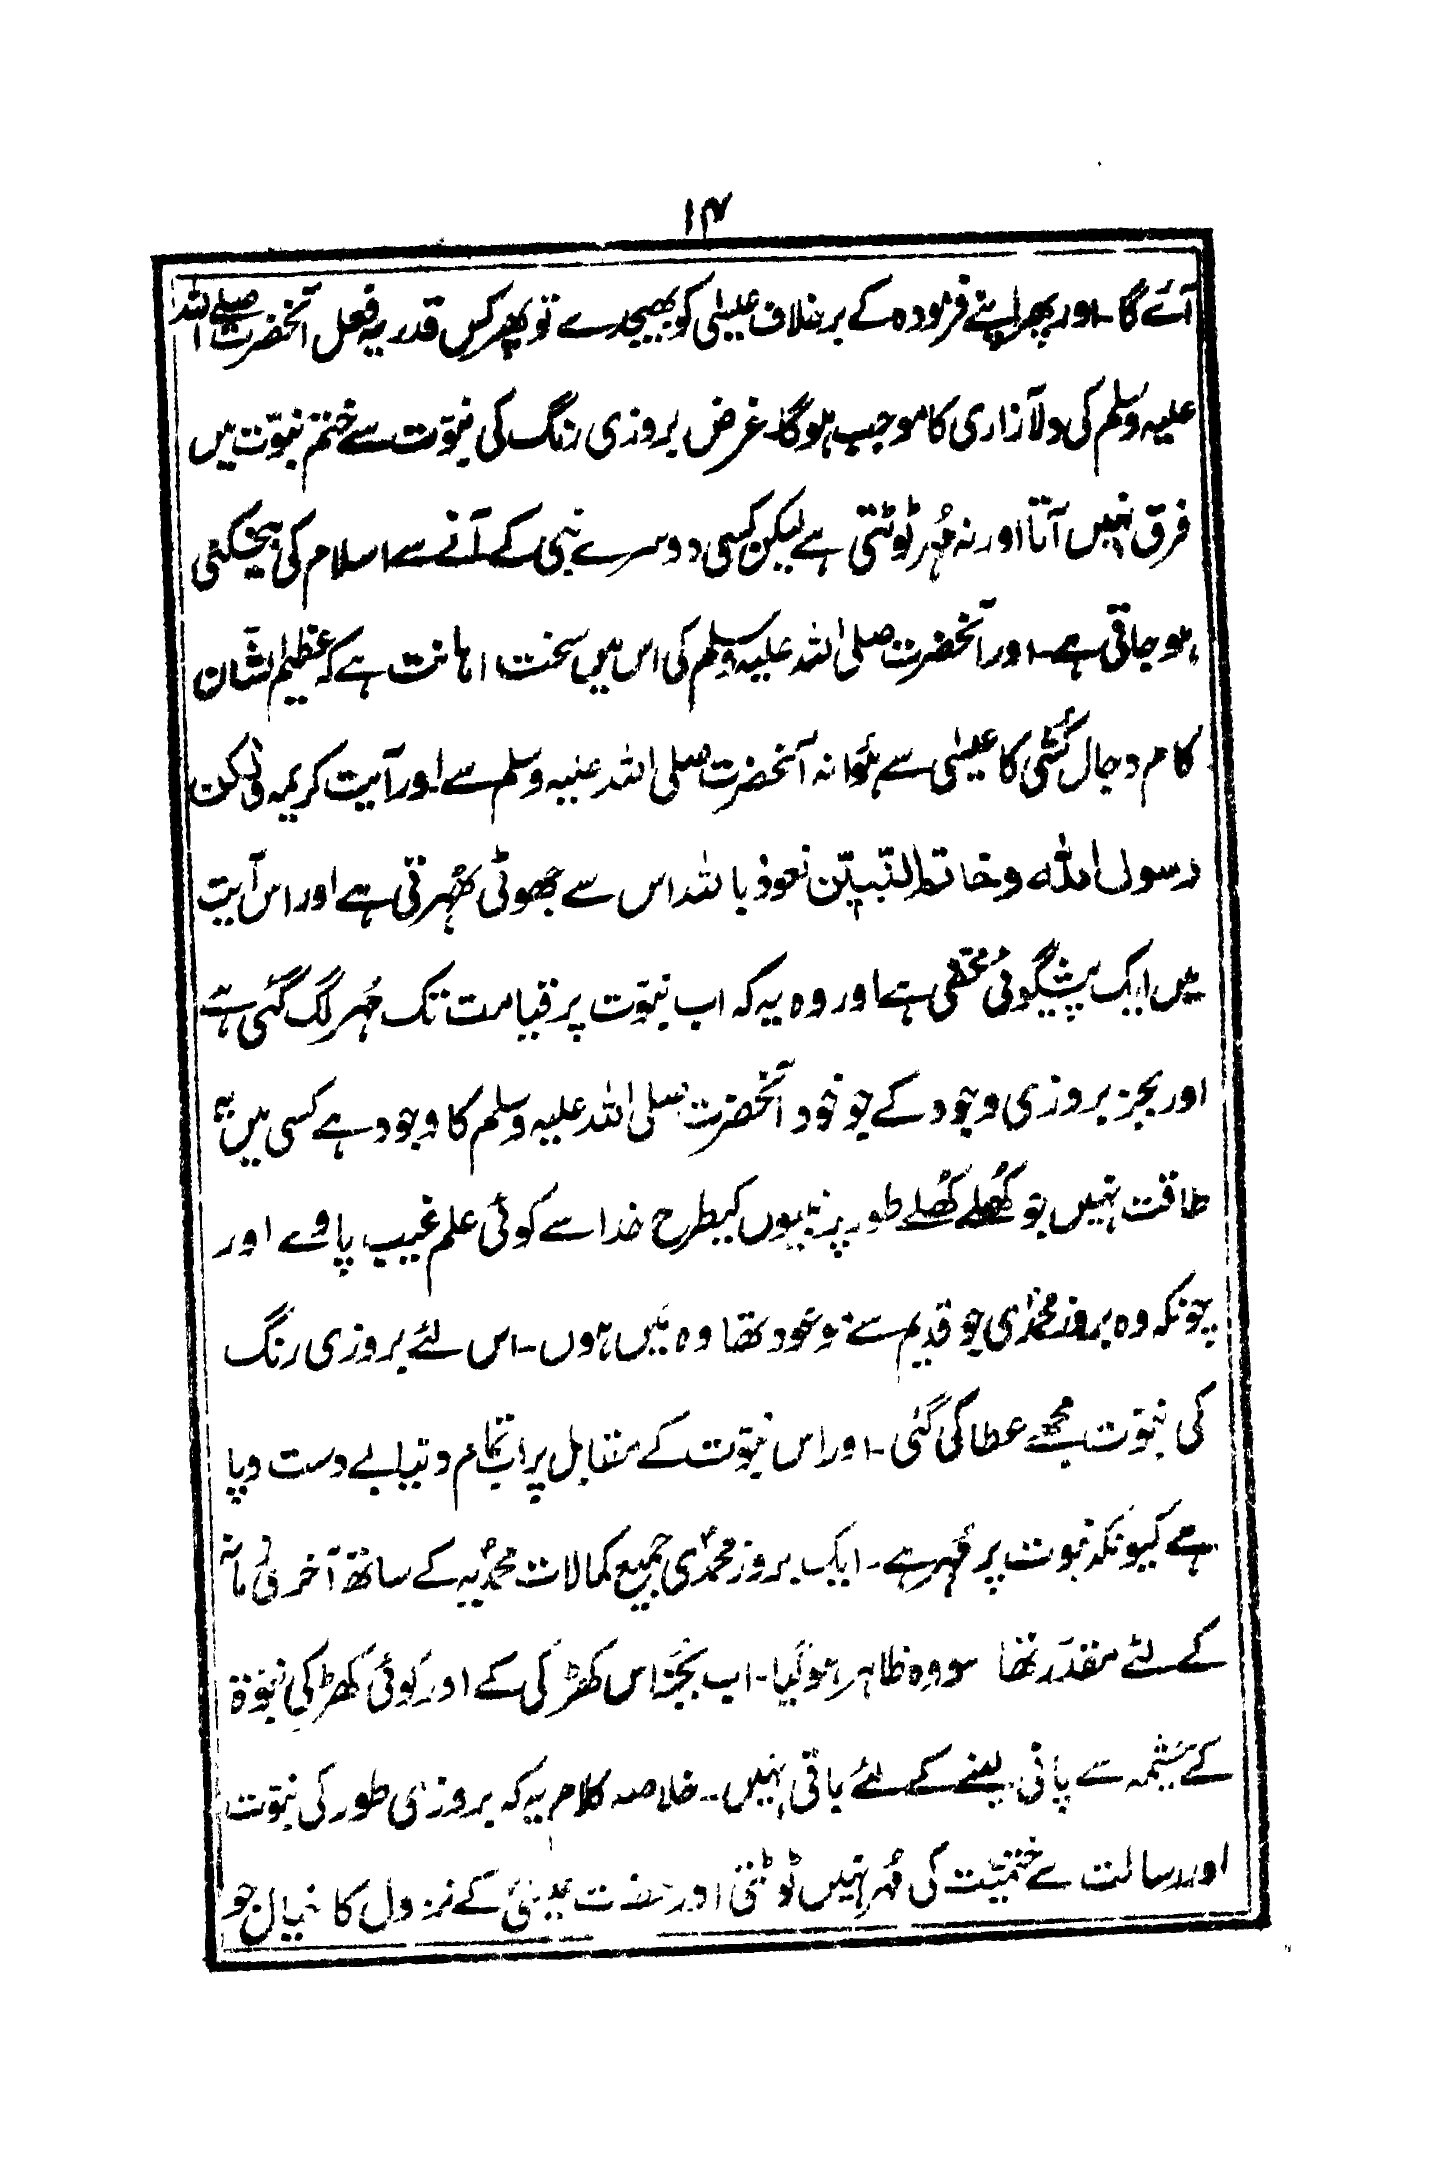 ۱۴
آئے گا۔ اور پھر اپنے فرمودہ کے برخلاف عیسیٰ کو بھیجدے تو پھر کس قدر یہ فعل آنحضرت صلے اللہ
علیہ وسلم کی دلآزاری کا موجب ہوگا۔ غرض بروزی رنگ کی نبوّت سے ختم نبوّت میں
فرق نہیں آتا اور نہ مُہر ٹوٹتی ہے لیکن کسی دوسرے نبی کے آنے سے اسلام کی بیخکنی
ہو جاتی ہے۔ اور آنحضرت صلی اللہ علیہ وسلم کی اس میں سخت اہانت ہے کہ عظیم الشّان
کام دجال کُشی کا عیسیٰ سے ہوُا نہ آنحضرت صلی اللہ علیہ وسلم سے۔ اور آیت کریمہ ولٰکن
رسول اللہ وخاتم النّبیّن نعوذ باللہ اس سے جھوٹی ٹھہرتی ہے اور اس آیت
میں ایک پیشگوئی مخفی ہے اور وہ یہ کہ اب نبوّت پر قیامت تک مُہر لگ گئی ہے
اور بجز بروزی وجود کے جو خود آنحضرت صلی اللہ علیہ وسلم کا وجود ہے کسی میں یہ
طاقت نہیں جو کھُلے کھُلے طور پر نبیوں کیطرح خدا سے کوئی علم غیب پاوے اور
چونکہ وہ بروز محمدؐی جو قدیم سے موعود تھا وہ مَیں ہوں۔ اس لئے بروزی رنگ
کی نبوّت مجھے عطا کی گئی۔ اور اس نبوّت کے مقابل پر اب تمام دنیا بے دست و پا
ہے کیونکہ نبوت پر مُہر ہے۔ ایک بروز محمدؐی جمیع کمالات محمدؐیہ کے ساتھ آخری زمانہ
کے لئے مقدّر تھا سو وہ ظاہر ہوگیا۔ اب بجُز اس کھڑکی کے اور کوئی کھڑکی نبوّۃ
کے چشمہ سے پانی لینے کے لئے باقی نہیں۔ خلاصہ کلام یہ کہ بروزی طور کی نبوّت
اور رسالت سے ختمیّت کی مُہر نہیں ٹوٹتی اور حضرت عیسیٰ کے نزول کا خیال جو